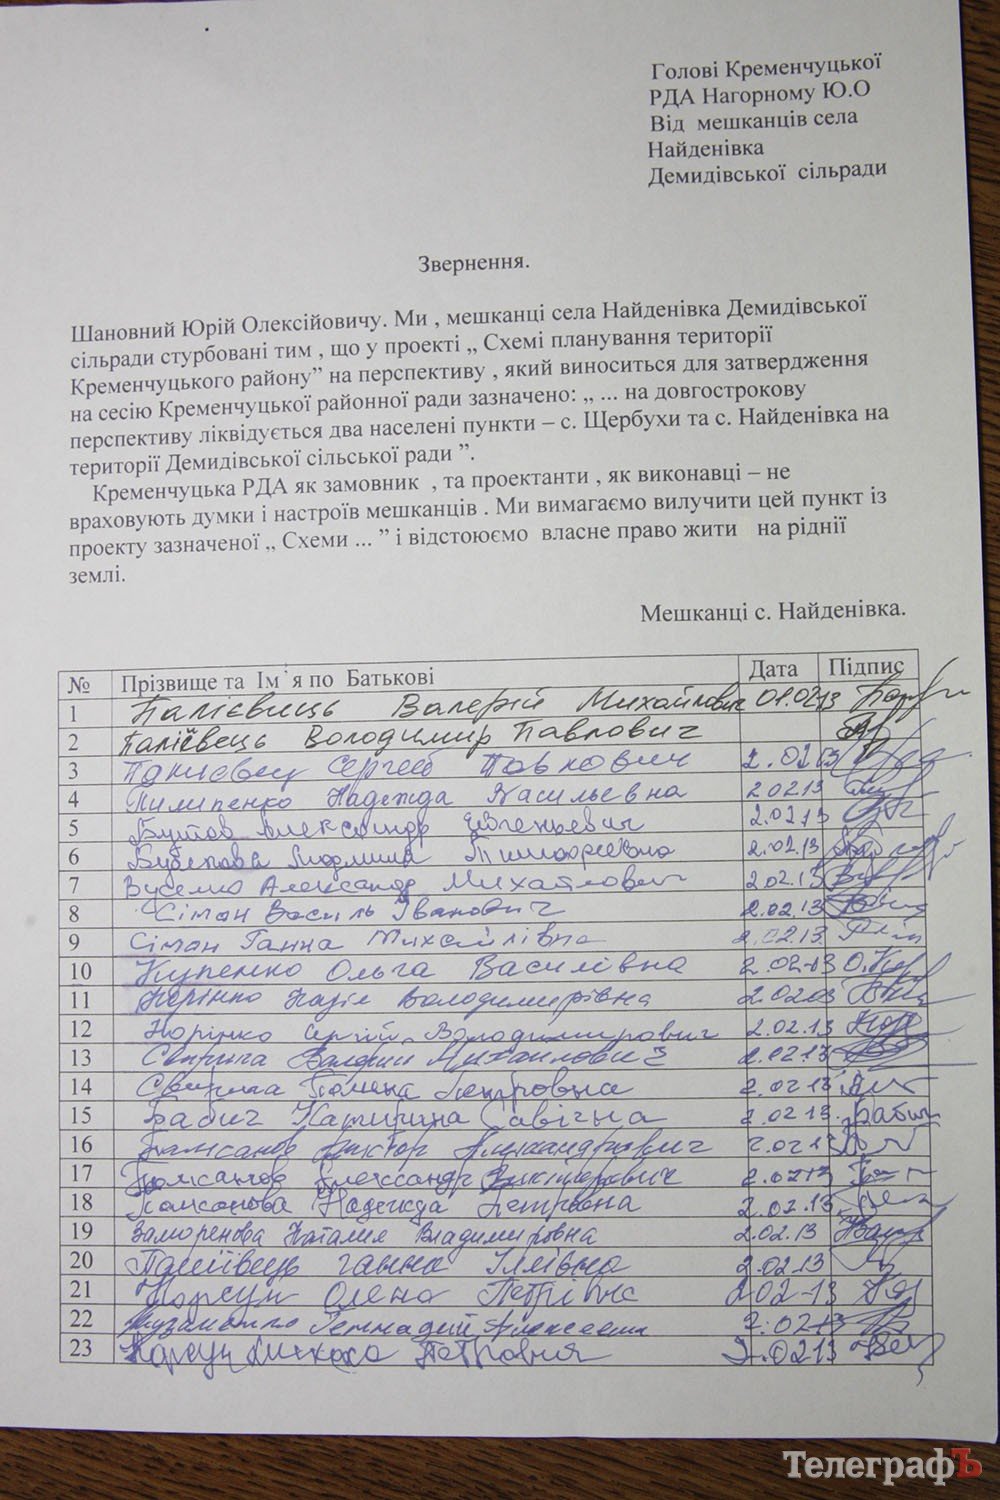 Голові Кременчуцької
РДА Нагорному Ю.О
Від мешканців села
Найденівка
Демидівської сільради
Звернення.
Шановний Юрій Олексійовичу. Ми , мешканці села Найденівка Демидівської
сільради стурбовані тим , що у проекті „ Схемі планування території
Кременчуцького району” на перспективу , який виноситься для затвердження
на сесію Кременчуцької районної ради зазначено: „ ... на довгострокову
перспективу ліквідується два населені пункти – с. Щербухи та с. Найденівка на
території Демидівської сільської ради ”.
Кременчуцька РДА як замовник , та проектанти , як виконавці – не
враховують думки і настроїв мешканців . Ми вимагаємо вилучити цей пункт із
проекту зазначеної „ Схеми ... ” і відстоюємо власне право жити на рідніï
землі.
Мешканці с. Найденівка.
№ Прізвище та Ім`я по Батькові Дата Підпис
1 Палієвиць Валерій Михайлович 01.0213
2 Паліївець Володимир Павлович
3 Сергей Павлович 2.0213
4 Пилипенко Надежда Васильевна 20213
5 Александр Евгеньевич 2.0213
6 Людмила 2.02.13
7 Александр Михайлович 2.02.13
8 Сіман Василь Іванович 2.02.13
9 Сіман Ганна Михайлівна 2.02.13
10 Ольга Василівна 2.02-13
11 Володимирівна 2.0203
12 Норінко Сергій Володимирович 2.02.13
13 Михайлович 2.0213
14 Петровна 2.0213
15 Бабич Катерина Савічна 2.0213. Бабич
16 2.0213
17 2.0213
18 Надежда Петровна 2.02.13
19 Заморенова Наталия Владимировна 2.02.13
20 Паліївець Ганна Іллівна 2.0213
21 Корсун Олена Петрівна 202-13
22 Геннадий 2.0213
23 Корсун Петровна 2.0213
ТелеграфЪ